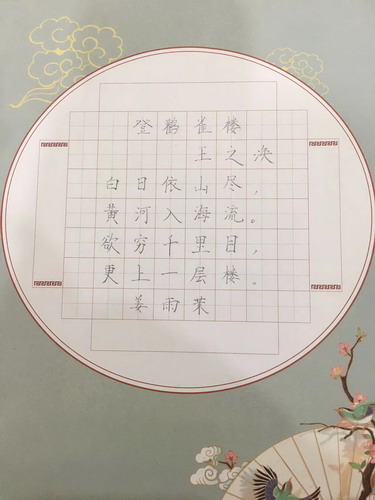 登鹳雀楼
王之涣
白日依山尽，
黄河入海流。
欲穷千里目，
更上一层楼。
姜雨茉